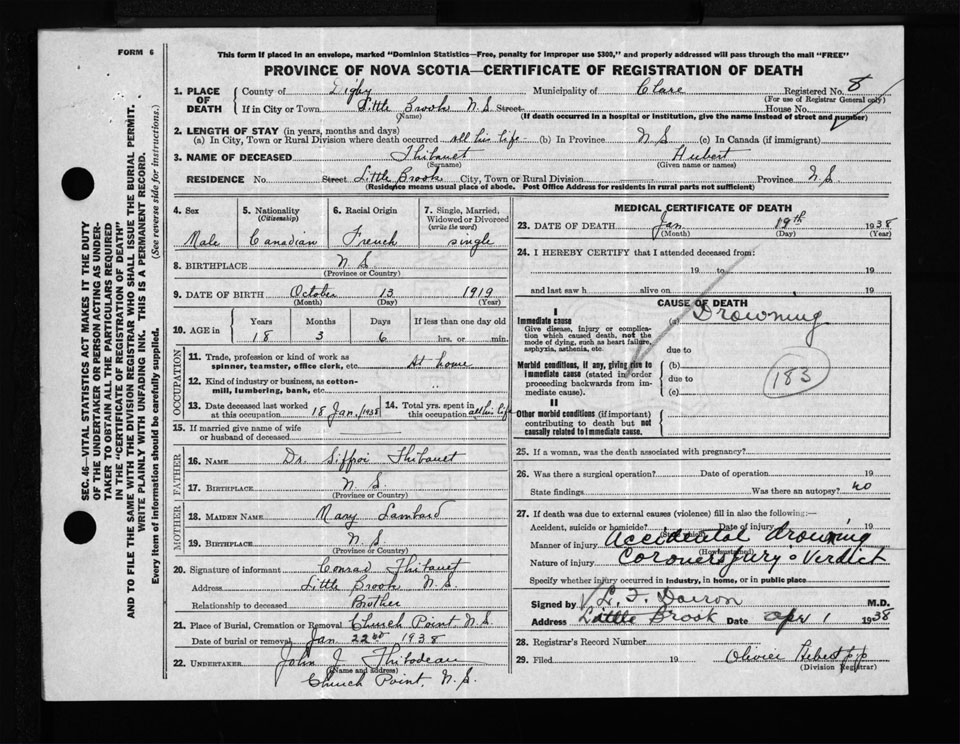 FORM 6
This form if placed in an envelope, marked "Dominion Statistics—Free, penalty for improper use $300," and properly addressed will pass through the mail "FREE"
PROVINCE OF NOVA SCOTIA—CERTIFICATE OF REGISTRATION OF DEATH
1. PLACE OF DEATH County of Digby Municipality of Clare Registered No. 8
(For use of Registrar General only)
If in City or Town Little Brook N.S. Street House No.
(Name) (If death occurred in a hospital or institution, give the name instead of street and number)
2. LENGTH OF STAY (in years, months and days)
(a) In City, Town or Rural Division where death occurred all his life (b) In Province N.S (c) In Canada (if immigrant)
3. NAME OF DECEASED Thibault Hubert
(Surname) (Given name or names)
RESIDENCE No. Street Little Brook City, Town or Rural Division Province N.S.
(Residence means usual place of abode. Post Office Address for residents in rural parts not sufficient)
SEC. 46—VITAL STATISTICS ACT MAKES IT THE DUTY
OF THE UNDERTAKER OR PERSON ACTING AS UNDER-
TAKER TO OBTAIN ALL THE PARTICULARS REQUIRED
IN THE "CERTIFICATE OF REGISTRATION OF DEATH"
AND TO FILE THE SAME WITH THE DIVISION REGISTRAR WHO SHALL ISSUE THE BURIAL PERMIT.
WRITE PLAINLY WITH UNFADING INK. THIS IS A PERMANENT RECORD.
Every item of information should be carefully supplied. (See reverse side for instructions.)
4. Sex 5. Nationality (Citizenship) 6. Racial Origin 7. Single, Married, Widowed or Divorced (write the word)
Male Canadian French single
8. BIRTHPLACE N.S.
(Province or Country)
9. DATE OF BIRTH October 13 1919
(Month) (Day) (Year)
10. AGE in Years Months Days If less than one day old
18 3 6 hrs. or min.
OCCUPATION
11. Trade, profession or kind of work as spinner, teamster, office clerk, etc. At home
12. Kind of industry or business, as cotton-mill, lumbering, bank, etc. "
13. Date deceased last worked at this occupation 18 Jan. 1938 14. Total yrs. spent in this occupation all his life
15. If married give name of wife or husband of deceased
FATHER
16. NAME Dr. Siffroi Thibault
17. BIRTHPLACE N.S
(Province or Country)
MOTHER
18. MAIDEN NAME Mary Lambard
19. BIRTHPLACE N.S.
(Province or Country)
20. Signature of informant Conrad Thibault
Address Little Brook N.S.
Relationship to deceased Brother
21. Place of Burial, Cremation or Removal Church Point N.S.
Date of burial or removal Jan 22nd 1938
22. UNDERTAKER John J. Thibodeau
(Name and address)
Church Point, N.S.
MEDICAL CERTIFICATE OF DEATH
23. DATE OF DEATH Jan 19th 1938
(Month) (Day) (Year)
24. I HEREBY CERTIFY that I attended deceased from:
19 to 19
and last saw h alive on 19
CAUSE OF DEATH
I
Immediate cause (a) Drowning
Give disease, injury or complication which caused death, not the mode of dying, such as heart failure, asphyxia, asthenia, etc.
due to
Morbid conditions, if any, giving rise to immediate cause (stated in order proceeding backwards from immediate cause).
(b)
due to
(c)
183
II
Other morbid conditions (if important) contributing to death but not causally related to immediate cause.
25. If a woman, was the death associated with pregnancy?
26. Was there a surgical operation? Date of operation 19
State findings Was there an autopsy? no
27. If death was due to external causes (violence) fill in also the following:—
Accident, suicide or homicide? Date of injury 19
(State which)
Manner of injury Accidental drowning
(How sustained)
Nature of injury Coroners Jury's Verdict
Specify whether injury occurred in industry, in home, or in public place
Signed by M.D.
Address Little Brook Date Apr 1 1938
28. Registrar's Record Number
29. Filed 19 Olivier
(Division Registrar)